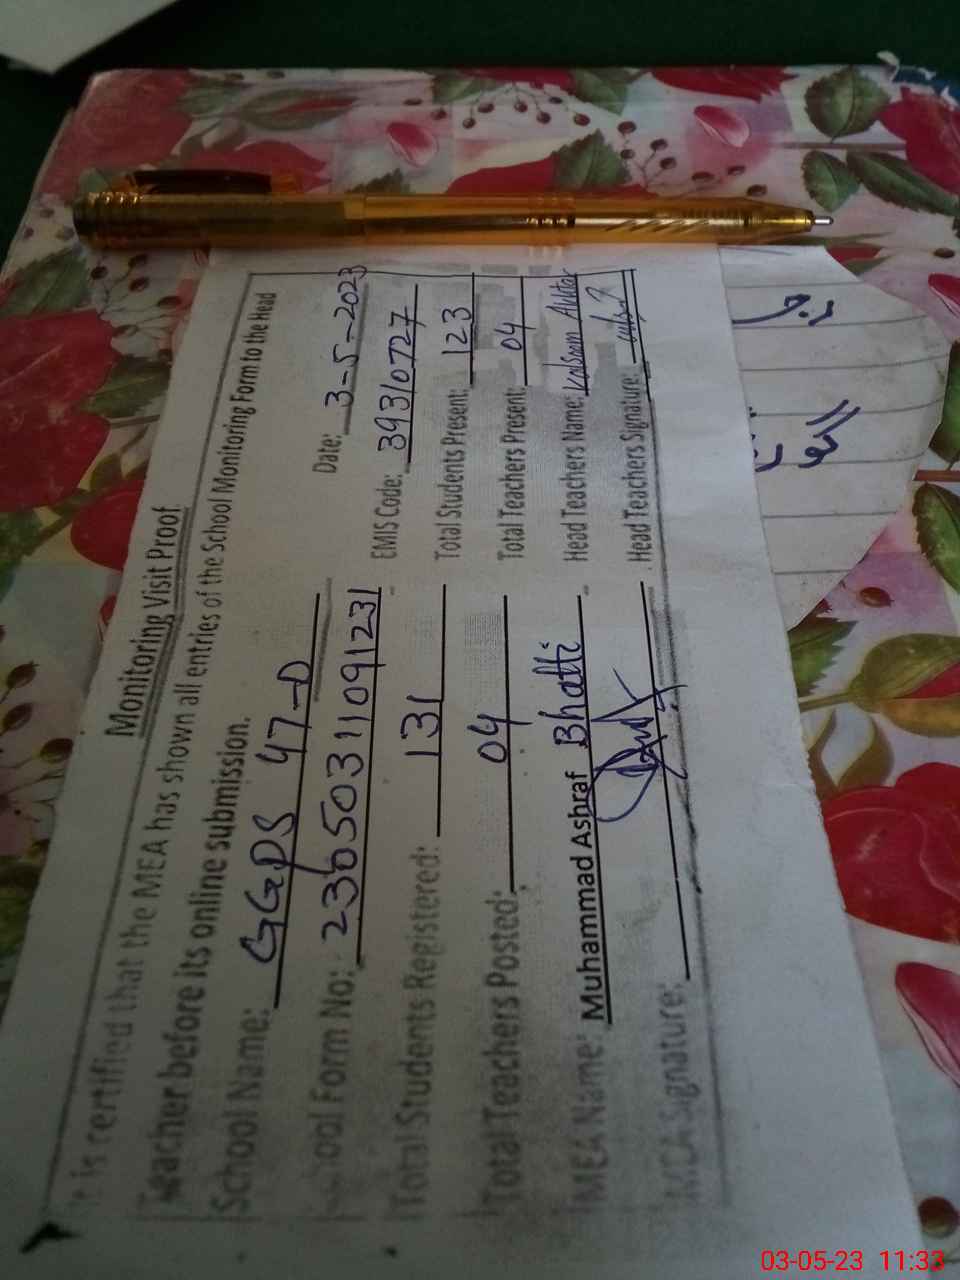 Monitoring Visit Proof
It is certified that the MEA has shown all entries of the School Monitoring Form to the Head
Teacher before its online submission.
School Name: GGPS 47-D Date: 3-5-2023
School Form No: 23650311091231 EMIS Code: 39310727
Total Students Registered: 131 Total Students Present: 123
Total Teachers Posted: 04 Total Teachers Present: 04
MEA Name: Muhammad Ashraf Bhatti Head Teachers Name: Kalsoom Akhtar
MEA Signature: Head Teachers Signature:
03-05-23 11:33